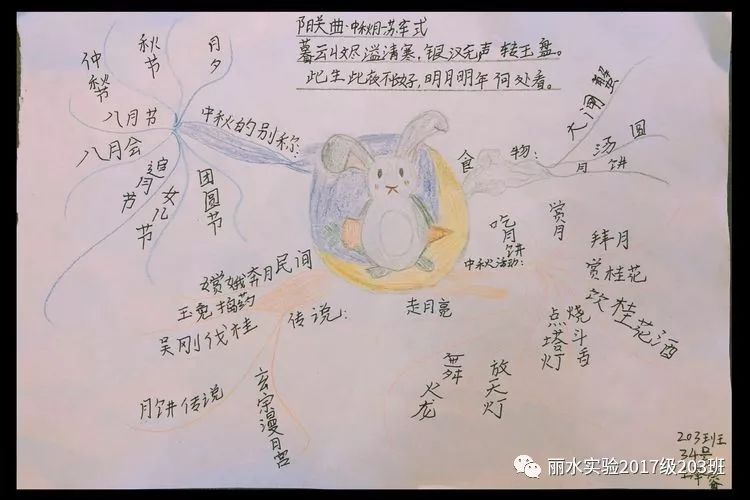 阳关曲·中秋月-苏军式
暮云收尽溢清寒，银汉无声转玉盘。
此生此夜不长好，明月明年何处看。
中秋的别称：
月夕
秋节
仲秋节
八月节
八月会
追月节
女儿节
团圆节
食物：
大闸蟹
汤圆
月饼
中秋活动：
吃月饼
赏月
拜月
赏桂花
饮桂花酒
烧斗香
点塔灯
放天灯
舞火龙
走月亮
传说：
嫦娥奔月民间
玉兔捣药
吴刚伐桂
月饼传说
玄宗漫月宫
203班
34号
丽水实验2017级203班